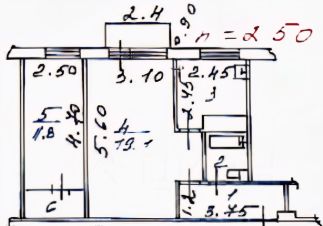 2.4
.90
h = 2 50
2.50
3.10
2.45
3
2.45
5
11.8
4.70
5.60
4
19.1
2
1.2
1
3.75
6